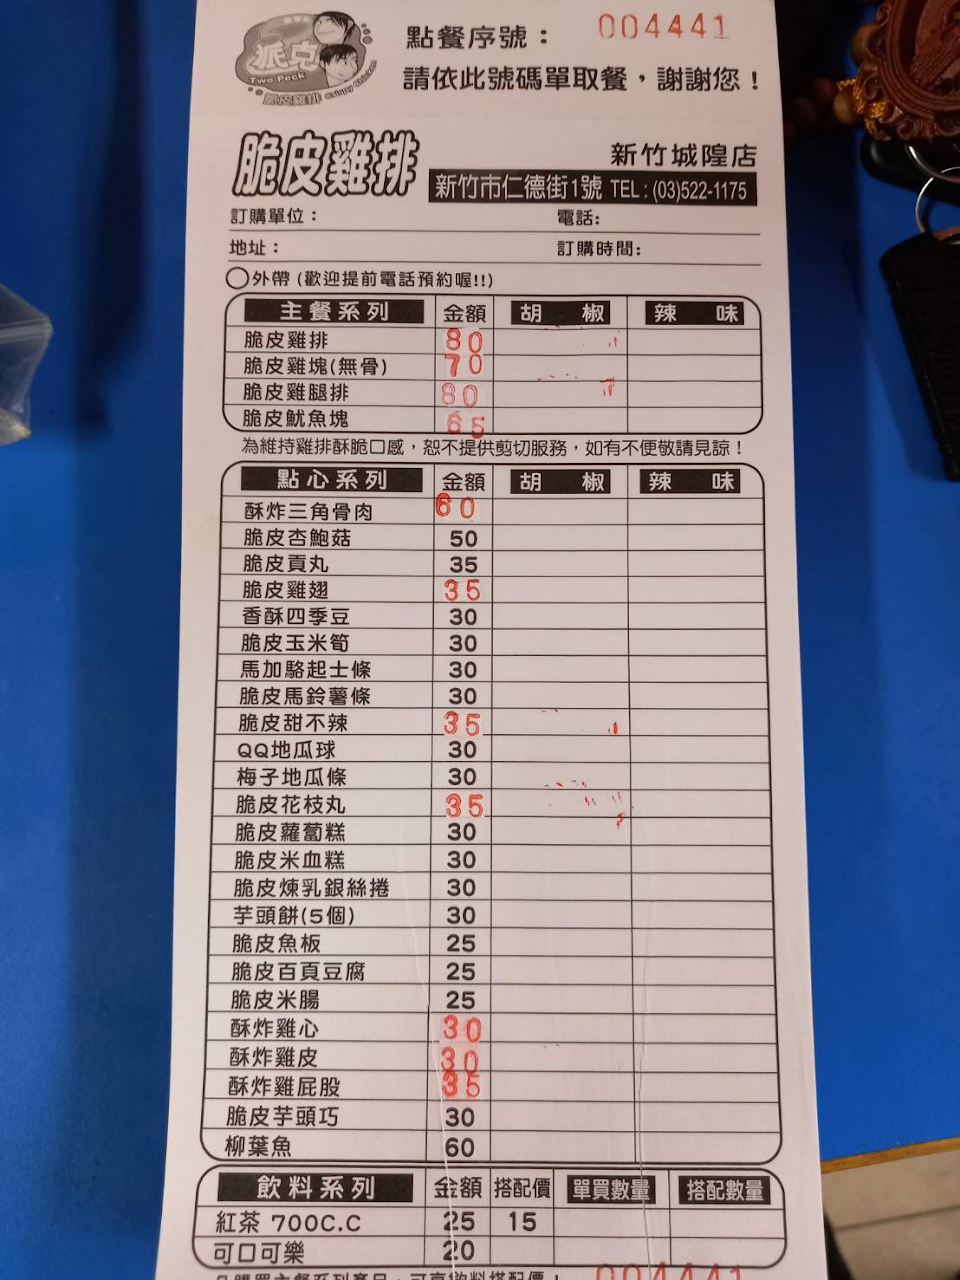 派克
Two Peck
脆皮雞排 Crispy Chicken
點餐序號： 004441
請依此號碼單取餐，謝謝您！
脆皮雞排
新竹城隍店
新竹市仁德街1號 TEL：(03)522-1175
訂購單位： 電話:
地址： 訂購時間:
○外帶 (歡迎提前電話預約喔!!)
主餐系列 金額 胡椒 辣味
脆皮雞排 80
脆皮雞塊(無骨) 70
脆皮雞腿排 80
脆皮魷魚塊 65
為維持雞排酥脆口感，恕不提供剪切服務，如有不便敬請見諒！
點心系列 金額 胡椒 辣味
酥炸三角骨肉 60
脆皮杏鮑菇 50
脆皮貢丸 35
脆皮雞翅 35
香酥四季豆 30
脆皮玉米筍 30
馬加駱起士條 30
脆皮馬鈴薯條 30
脆皮甜不辣 35
QQ地瓜球 30
梅子地瓜條 30
脆皮花枝丸 35
脆皮蘿蔔糕 30
脆皮米血糕 30
脆皮煉乳銀絲捲 30
芋頭餅(5個) 30
脆皮魚板 25
脆皮百頁豆腐 25
脆皮米腸 25
酥炸雞心 30
酥炸雞皮 30
酥炸雞屁股 35
脆皮芋頭巧 30
柳葉魚 60
飲料系列 金額 搭配價 單買數量 搭配數量
紅茶 700C.C 25 15
可口可樂 20
凡購買主餐系列產品，可享飲料搭配價！ 004441